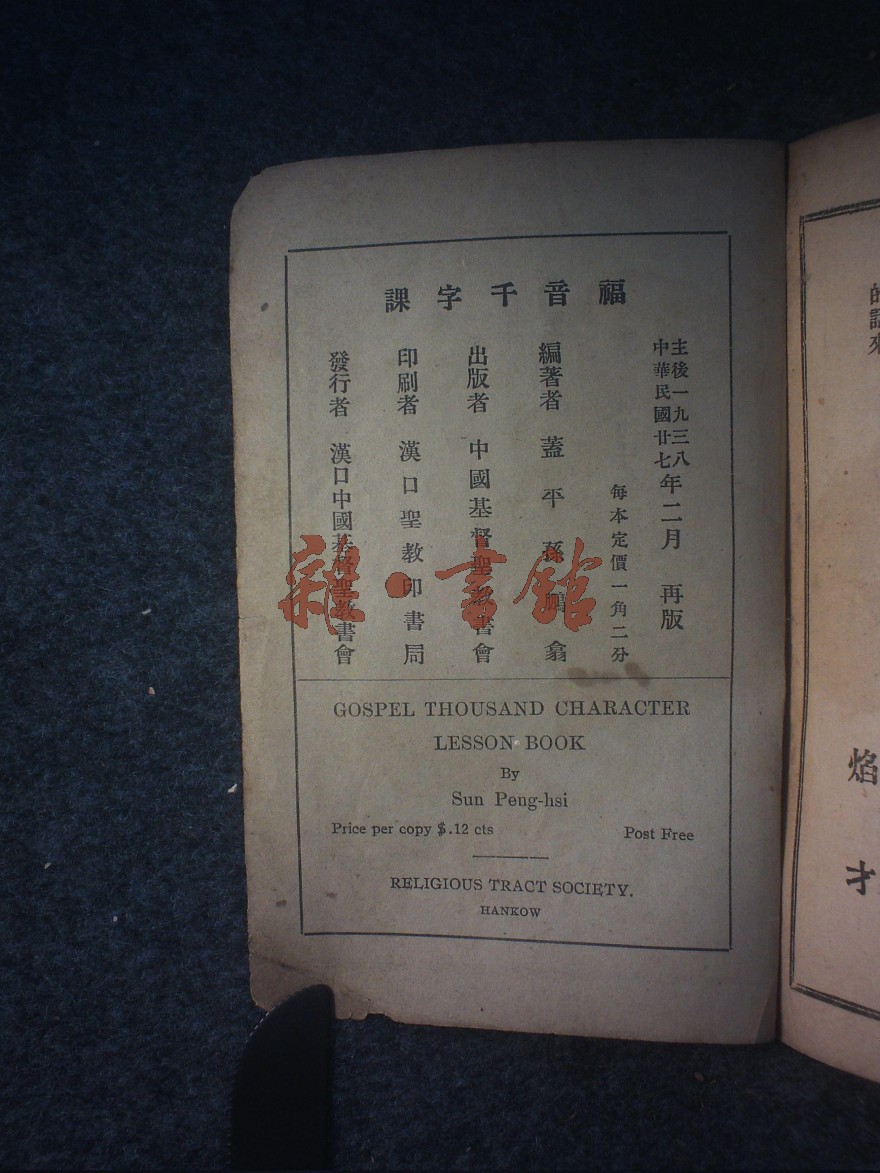 福音千字課
主後一九三八
中華民國廿七年二月 再版
每本定價一角二分
編著者 蓋平孫鵬翕
出版者 中國基督聖教書會
印刷者 漢口聖教印書局
發行者 漢口中國基督聖教書會
雜·書館
GOSPEL THOUSAND CHARACTER
LESSON BOOK
By
Sun Peng-hsi
Price per copy $.12 cts Post Free
RELIGIOUS TRACT SOCIETY.
HANKOW
焰
才